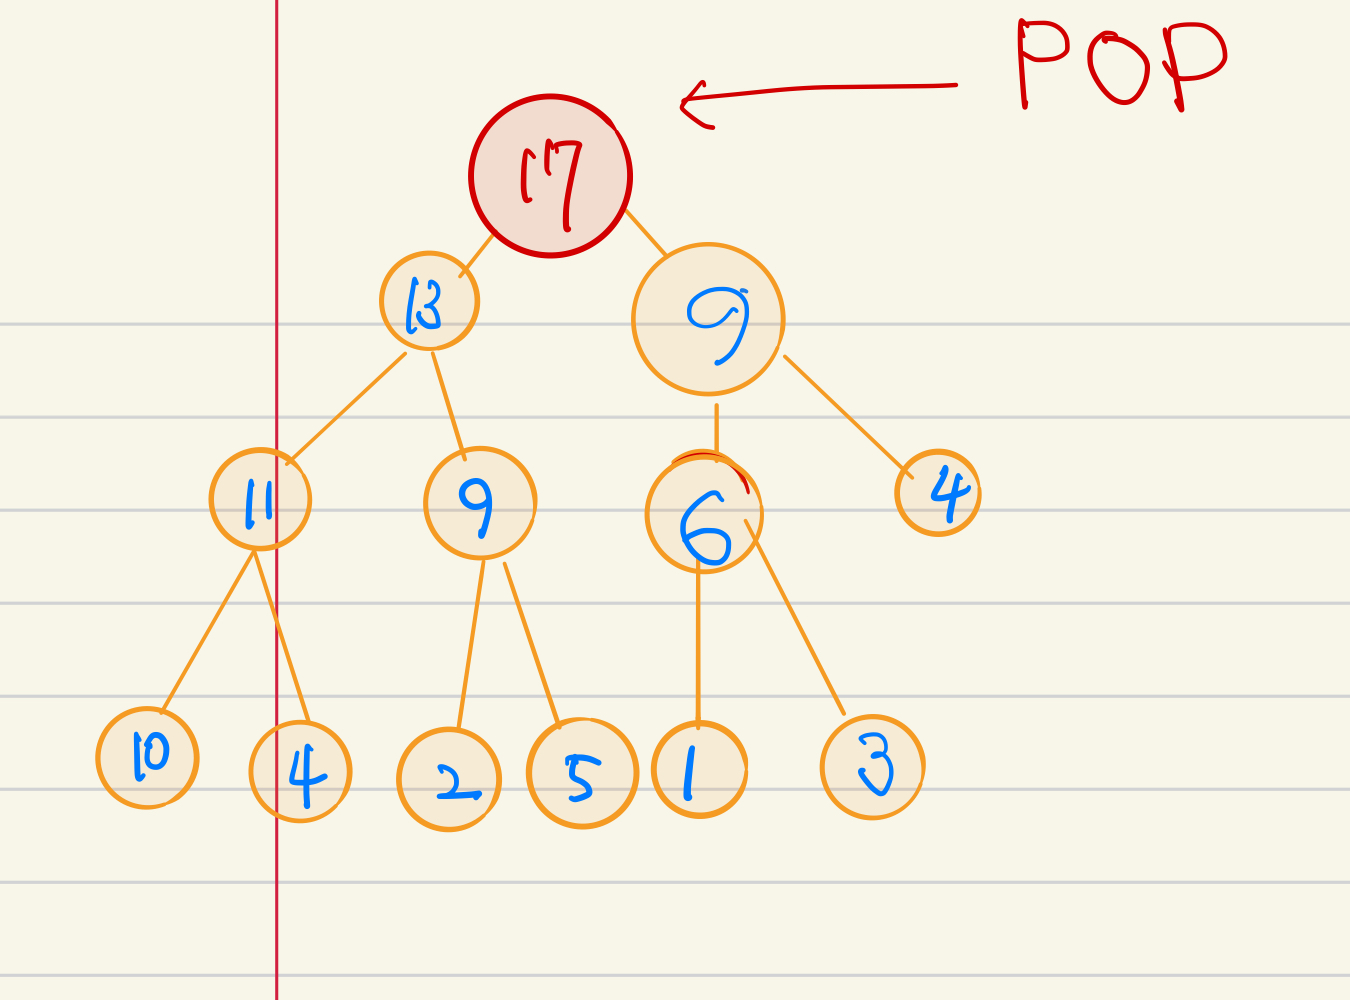 POP
17
13 9
11 9 6 4
10 4 2 5 1 3